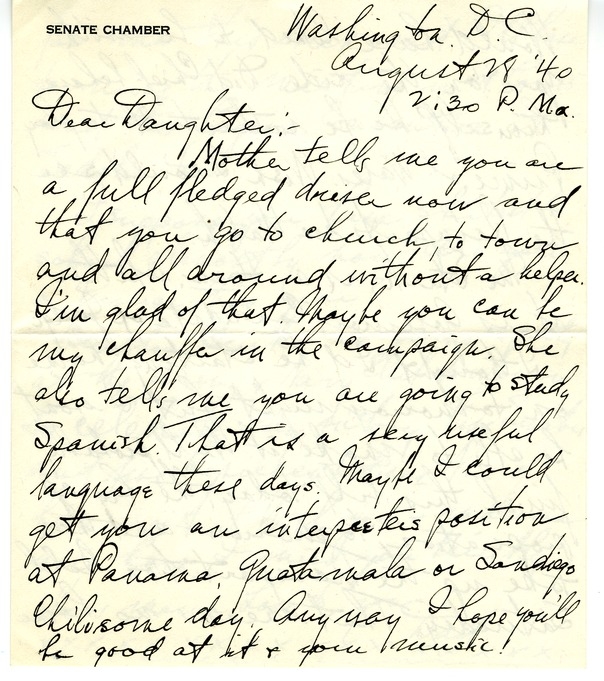 SENATE CHAMBER
Washington. D.C.
August 28 '40
2:30 P. Ma.
Dear Daughter:-
Mother tells me you are
a full fledged driver now and
that you go to church, to town
and all around without a helper.
I'm glad of that. Maybe you can be
my chauffer in the campaign. She
also tells me you are going to study
Spanish. That is a very useful
language these days. Maybe I could
get you an interpeters position
at Panama, Guatamala or Sandigo
Chili some day. Anyway I hope you'll
be good at it & your music!